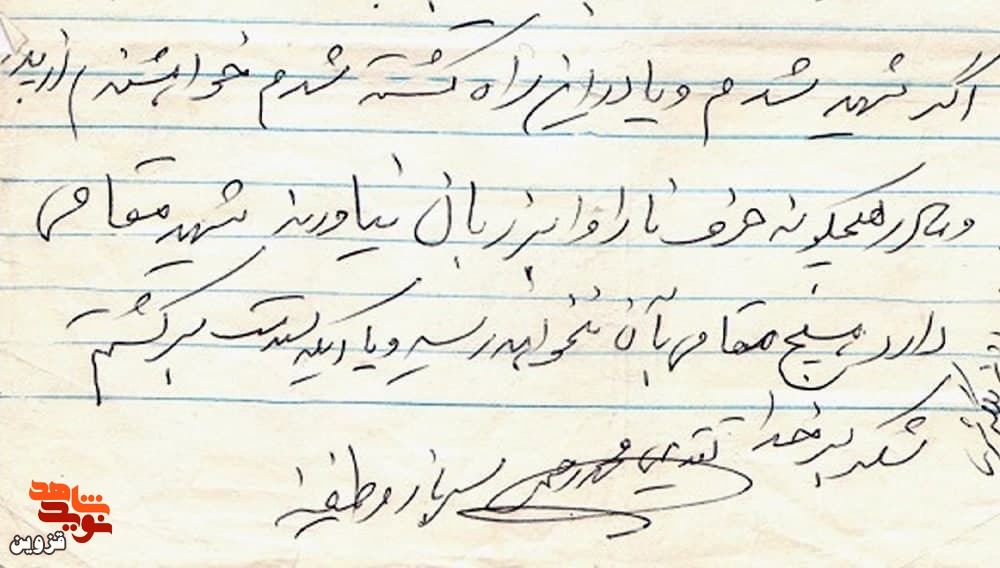 اگر شهید شدم و یا در این راه کشته شدم خواهشمندم از پدر
و مادر هیچگونه حرف ناروا بر زبان نیاورند شهید مقامی
دارد هیچ مقامی بآن نخواهد رسید و یا اینکه برگشتم
شکر بر خدا تقدیمی محمدرحیم سرباز وظیفه
نوید شاهد
قزوین